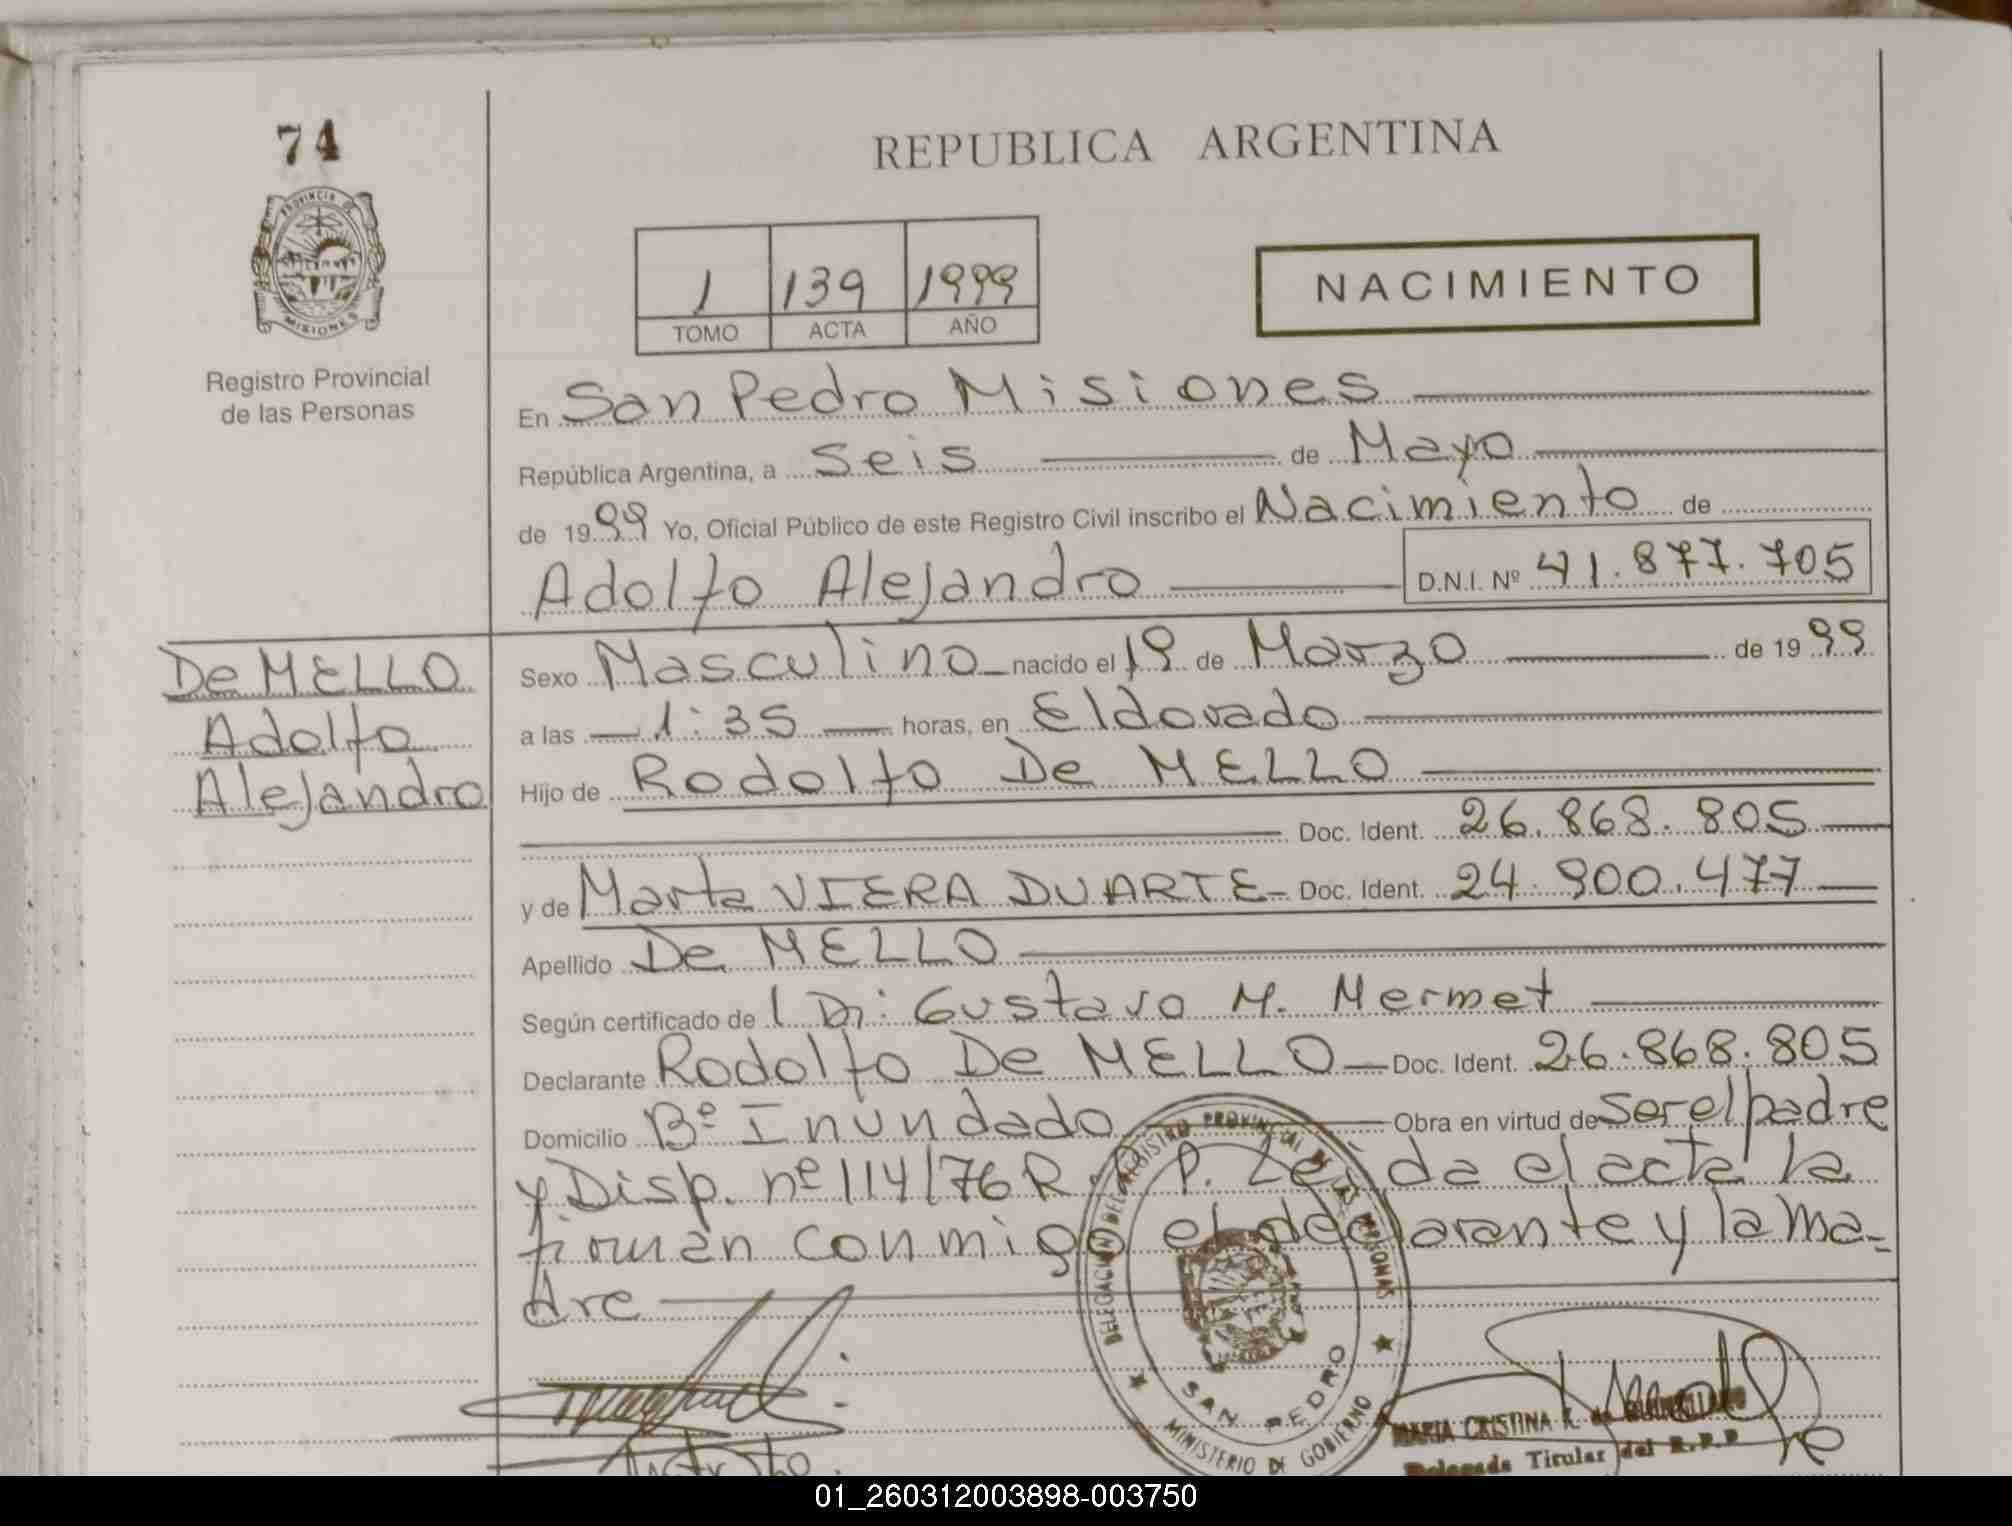 74
PROVINCIA DE
MISIONES
Registro Provincial
de las Personas
REPUBLICA ARGENTINA
1 139 1999
TOMO ACTA AÑO
NACIMIENTO
En San Pedro Misiones
República Argentina, a seis de Mayo
de 1999 Yo, Oficial Público de este Registro Civil inscribo el Nacimiento de
Adolfo Alejandro D.N.I. Nº 41.877.705
De MELLO
Adolfo
Alejandro
Sexo Masculino nacido el 19 de Marzo de 1999
a las 1:35 horas, en Eldorado
Hijo de Rodolfo De MELLO
Doc. Ident. 26.868.805
y de Marta VIERA DUARTE Doc. Ident. 24.900.477
Apellido De MELLO
Según certificado de l Dr: Gustavo M. Mermet
Declarante Rodolfo De MELLO Doc. Ident. 26.868.805
Domicilio Bº Inundado Obra en virtud de Ser el padre
y Disp. nº 114/76 R. P. P. Leída el acta la
firman conmigo el declarante y la ma-
dre
DELEGACION DEL REGISTRO PROVINCIAL DE LAS PERSONAS
SAN PEDRO
MINISTERIO DE GOBIERNO
MARIA CRISTINA K. de
Delegada Titular del R.P.P
01_260312003898-003750